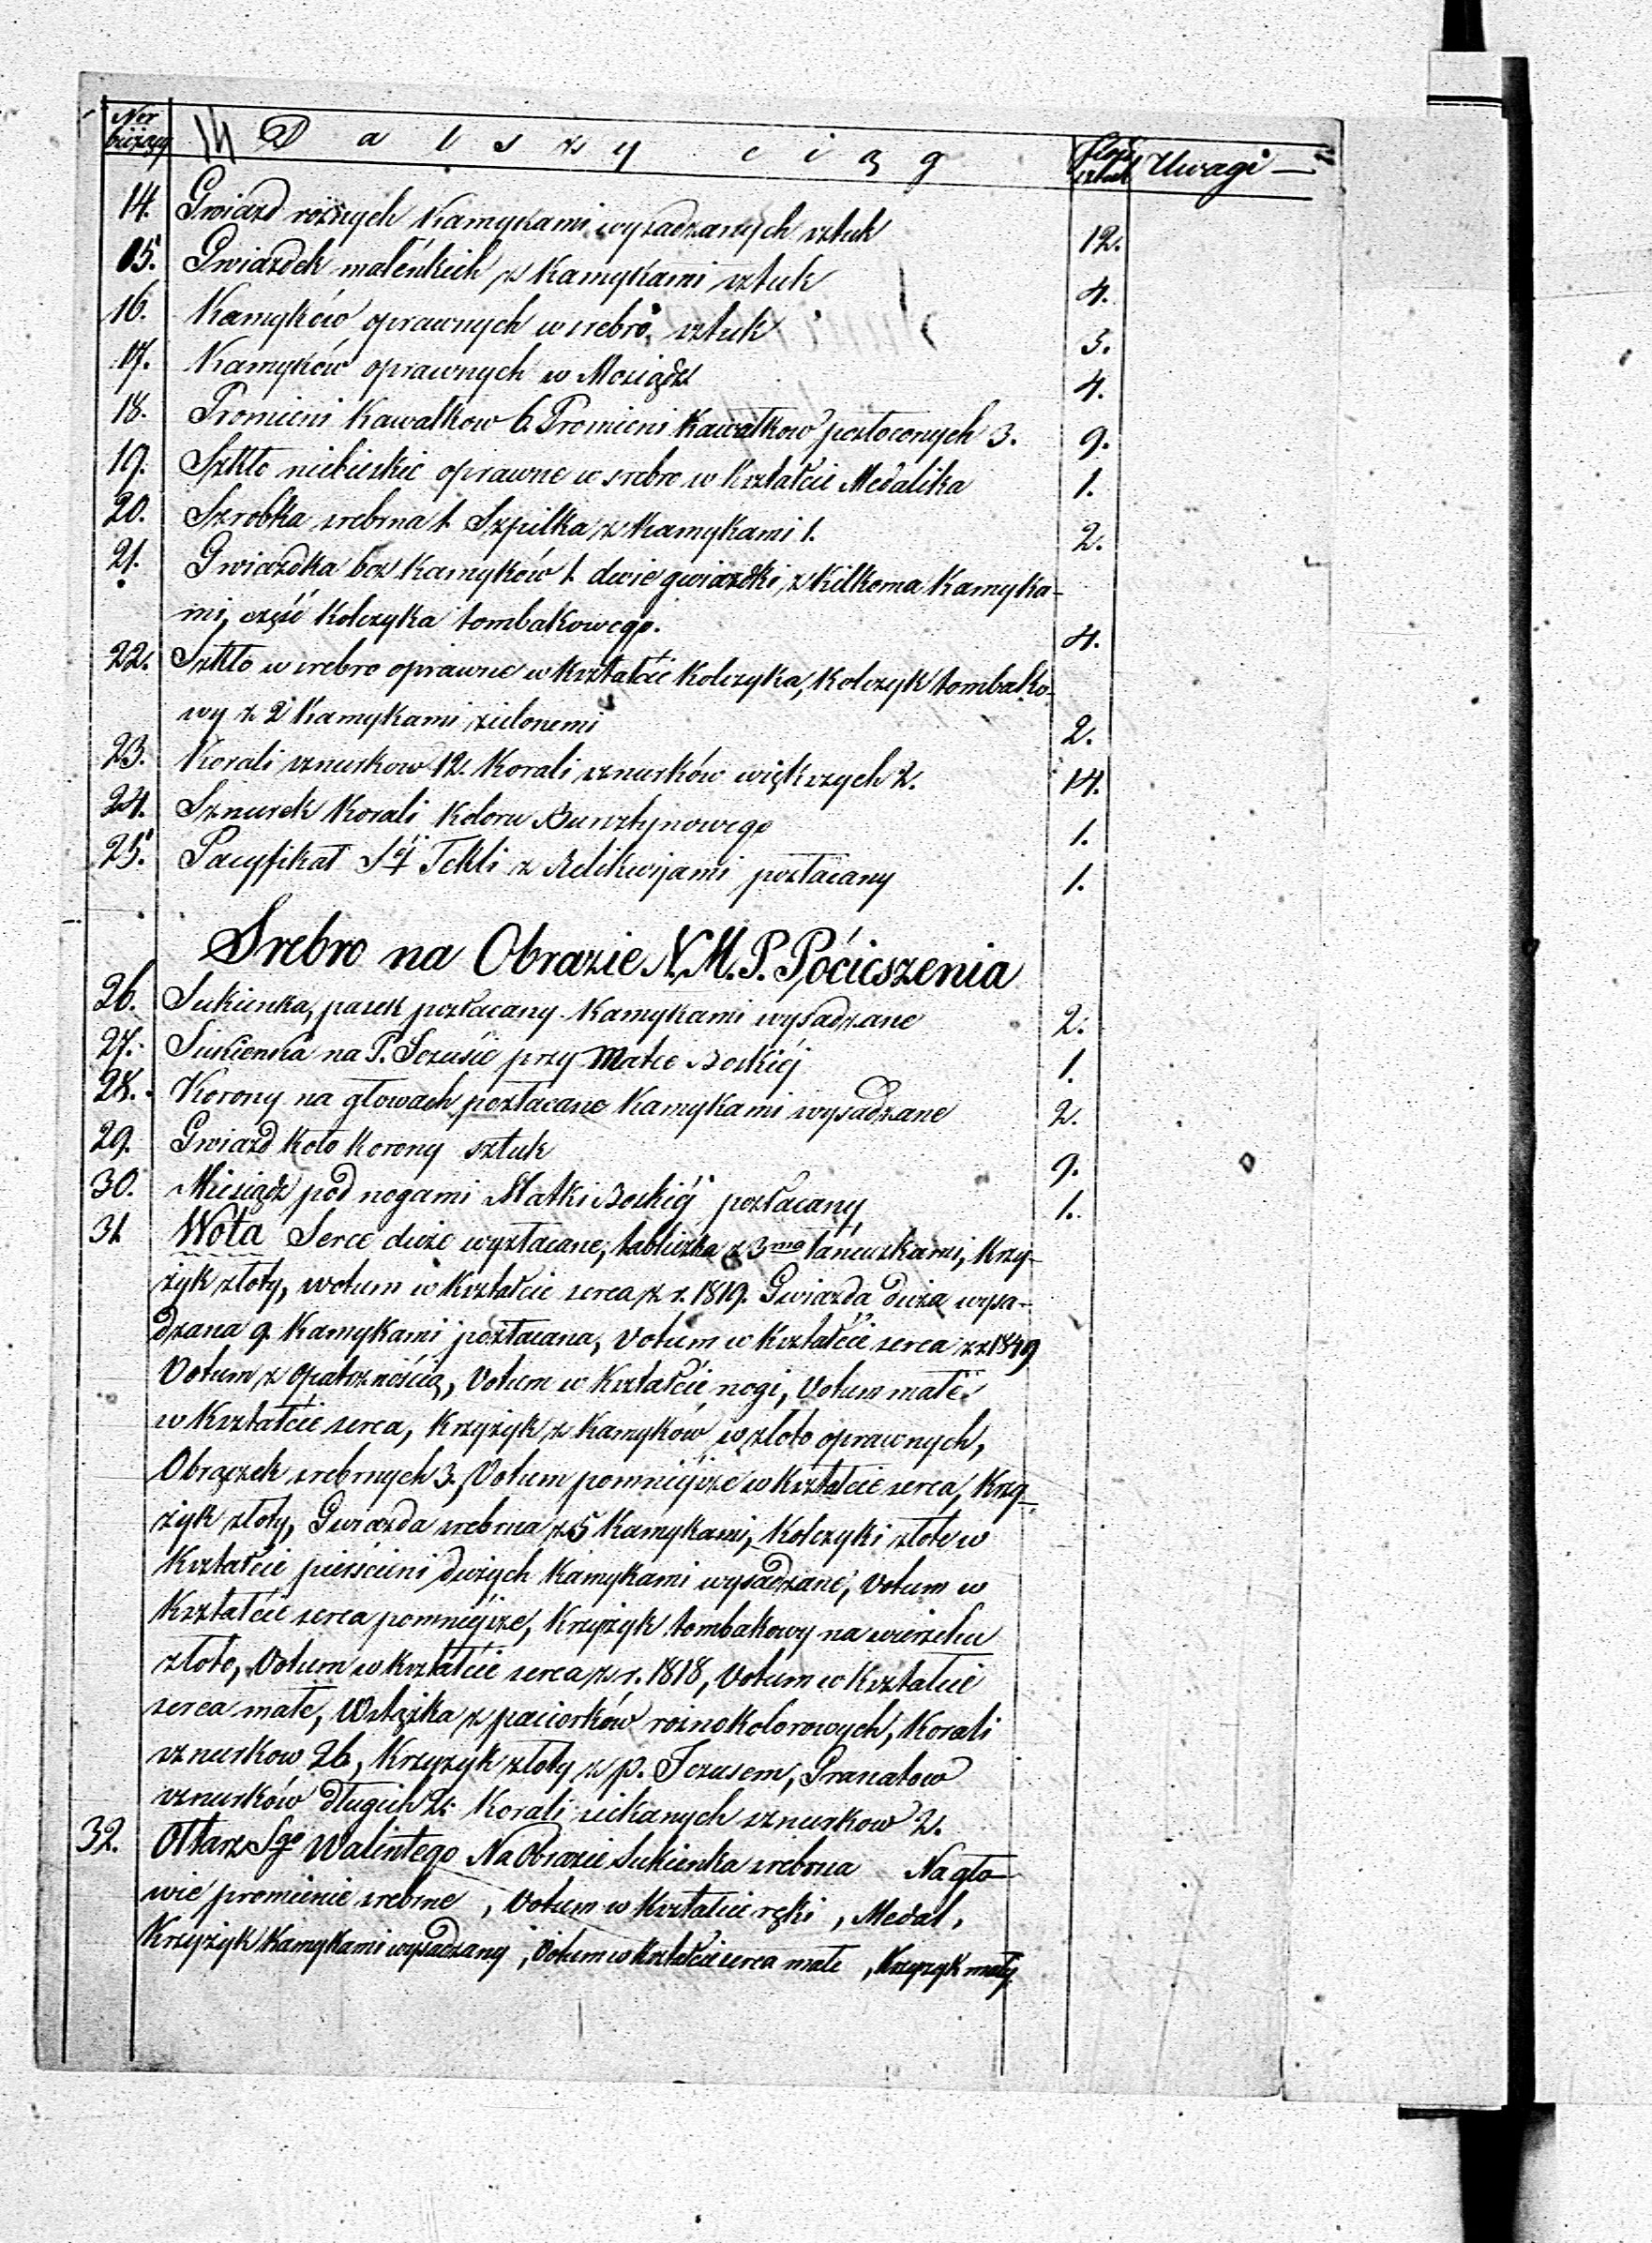 Ner bieżący 14 Dalszy ciąg Ilość sztuk Uwagi
14. Gwiazd rożnych Kamykami wysadzanych sztuk 12.
15. Gwiazdek maleńkich z Kamykami sztuk 4.
16. Kamyków oprawnych w srebro, sztuk 3.
17. Kamyków oprawnych w Mosiądz 4.
18. Promieni Kawałkow 6. Promieni Kawałkow pozłoconych 3. 9.
19. Szkło niebieskie oprawne w srebro w Kształcie Medalika 1.
20. Szrobka srebrna 1. Szpilka z Kamykami 1. 2.
21. Gwiazdka bez Kamyków 1. dwie gwiazdki z Kilkoma Kamyka-
mi, część Kolczyka tombakowego. 4.
22. Szkło w srebro oprawne w Kształcie Kolczyka, Kolczyk tombako-
wy z 2 Kamykami zielonemi 2.
23. Korali sznurkow 12. Korali sznurków większych 2. 14.
24. Sznurek Korali Koloru Bursztynowego 1.
25. Pacyfikał Stej Tekli z Relikwijami pozłacany 1.
Srebro na Obrazie N.M.P. Pocieszenia
26. Sukienka, pasek pozłacany Kamykami wysadzane 2.
27. Sukienka na P. Jezusie przy Matce Boskiéj 1.
28. Korony na głowach pozłacane Kamykami wysadzane 2.
29. Gwiazd Koło Korony sztuk 9.
30. Miesiądz pod nogami Matki Boskiéj pozłacany 1.
31. Wota Serce duże wyzłacane, tabliczka z 3ma łańcuszkami, Krzy-
żyk złoty, wotum w Kształcie serca z r. 1819. Gwiazda duża wysa-
dzana 9. Kamykami pozłacana, Votum w Kształcie serca z r 1849
Votum z opatrznością, Votum w Kształcie nogi, Votum małe
w Kształcie serca, Krzyżyk z Kamyków w złoto oprawnych,
Obrączek srebrnych 3. Votum pomniejsze w Kształcie serca, Krzy-
żyk złoty, Gwiazda srebrna z 5 Kamykami, Kolczyki złote w
Kształcie pierścieni dużych Kamykami wysadzane, Votum w
Kształcie serca pomniejsze, Krzyżyk tombakowy na wierzchu
złoto, Votum w Kształcie serca z r. 1818, Votum w Kształcie
serca małe, Wstążka z paciorków rożnokolorowych, Korali
sznurkow 26, Krzyżyk złoty z p. Jezusem, Granatow
sznurków długich 2. Korali siekanych sznurkow 2.
32. Ołtarz Sgo Walintego Na Obrazie Sukienka srebrna Na gło-
wie promienie srebrne, Votum w Kształcie ręki, Medal,
Krzyżyk Kamykami wysadzany, Votum w Kształcie serca małe, Krzyżyk mały